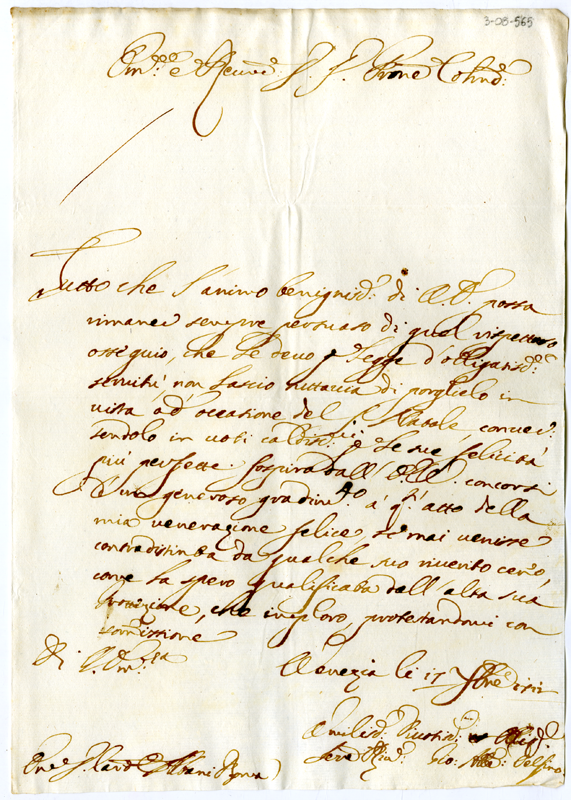 3-08-565
Em.mo e Rev.mo S.r S.r P.rone Col.mo
Tutto che l'animo benignis.o di V. E. possa
rimaner sempre persuaso di quel rispettoso
ossequio, che le devo p legge d'obligatis.a
servitù, non lascio tuttavia di porglielo in
vista ad' occasione del S. Natale, conver-
tendolo in voti caldis.mi p le sue felicità
più perfette. Sospirarà dall' E. V. concorsi
d'un generoso gradim.to à q.to atto della
mia venerazione felice, se mai venisse
contradistinta da qualche suo riverito cenno,
come la spero qualificata dall' alta sua
protezione, che imploro, protestandomi con
somissione
Di V. Em.za
Venezia li 17 Xbre 1712
Em.o S.r Card.e Albani Roma
Humilis.o Divotis.o et Oblig.o
Ser.e Dolfino